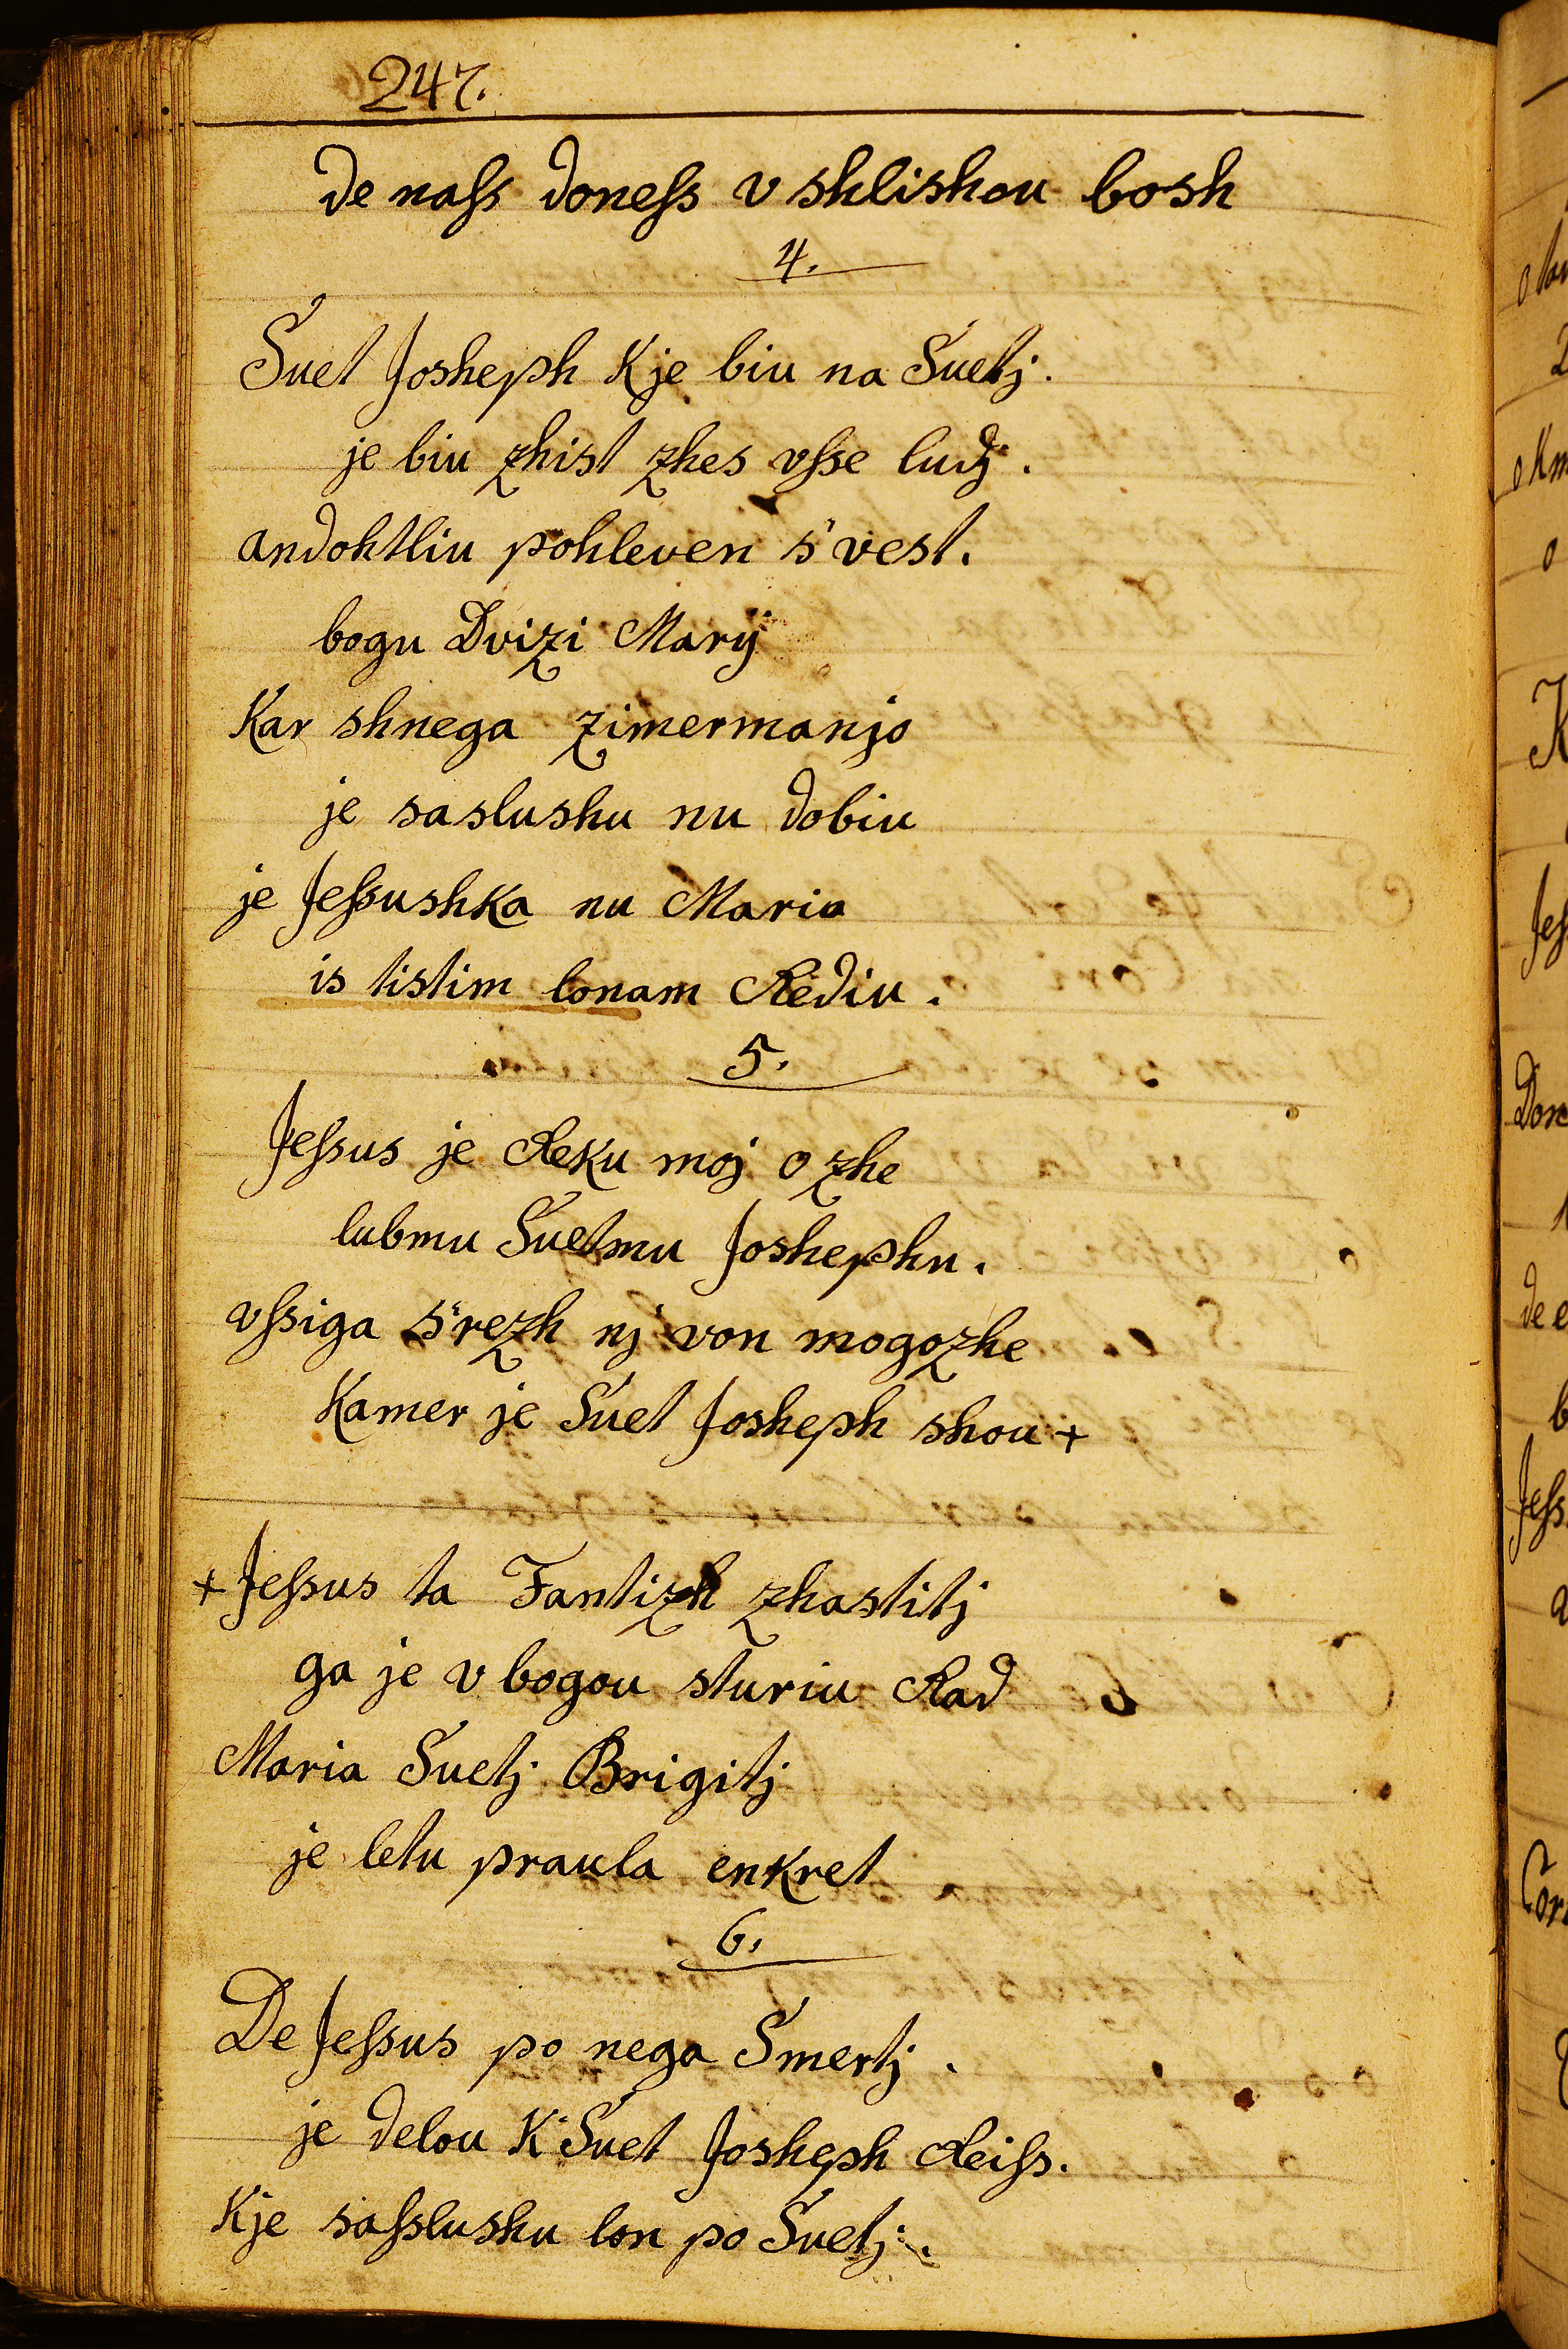 247.
de naſs doneſs v shlishou bosh
4.
Suet Josheph Kje biu na Suetj.
je biu zhist zhes vſse ludj.
andohtliu pohleven s'vest.
bogu Dvizi Marÿ
Kar shnega zimermanjo
je saslushu nu dobiu
je Jeſsushka nu Maria
is tistim lonam Rediu.
5.
Jeſsus je Reku moj ozhe
lubmu Suetmu Joshephu.
vſsiga s'rezh nj von mogozhe
Kamer je Suet Josheph shou +
+ Jeſsus ta Fantizh zhastitj
ga je v bogou sturiu Rad
Maria Suetj Brigitj
je letu praula enkret
6.
De Jeſsus po nega Smertj.
je delou K Suet Josheph Reiſs.
Kje saſslushu lon po Suetj.